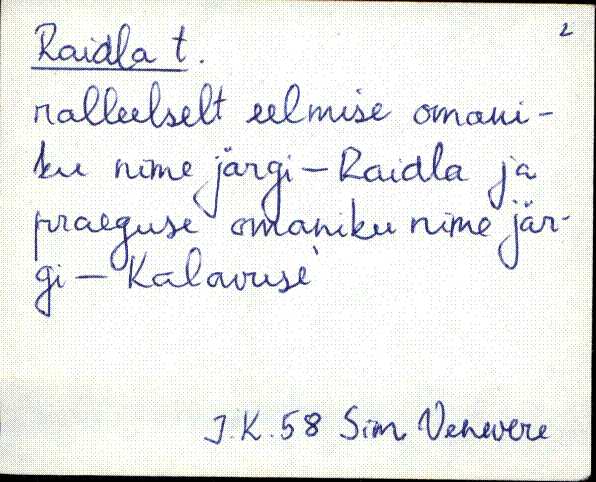 2
Raidla t.
ralleelselt eelmise omani-
ku nime järgi – Raidla ja
praeguse omaniku nime jär-
gi – Kalavuse`
J.K. 58 Sim Venevere